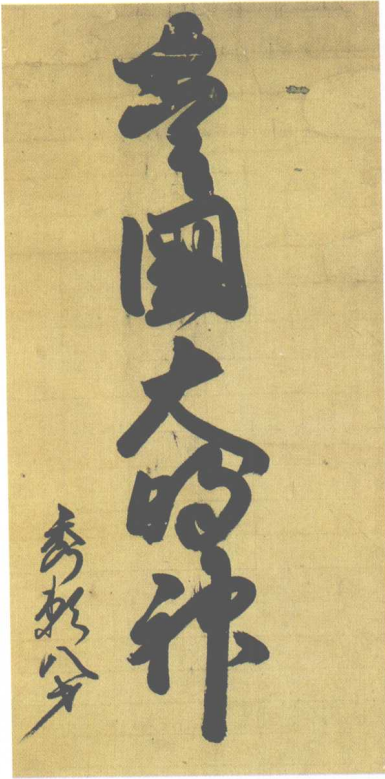 豊國大明神
秀頼八才